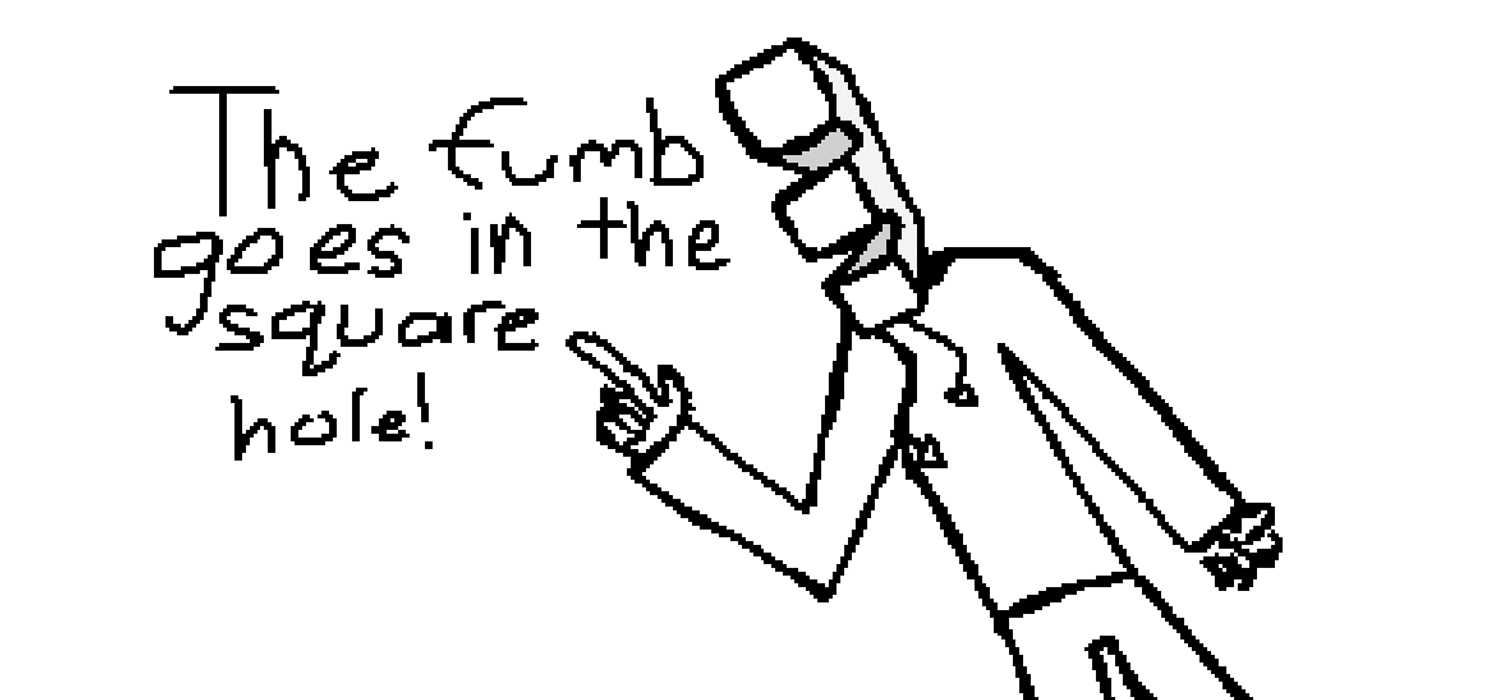 The fumb
goes in the
square
hole!